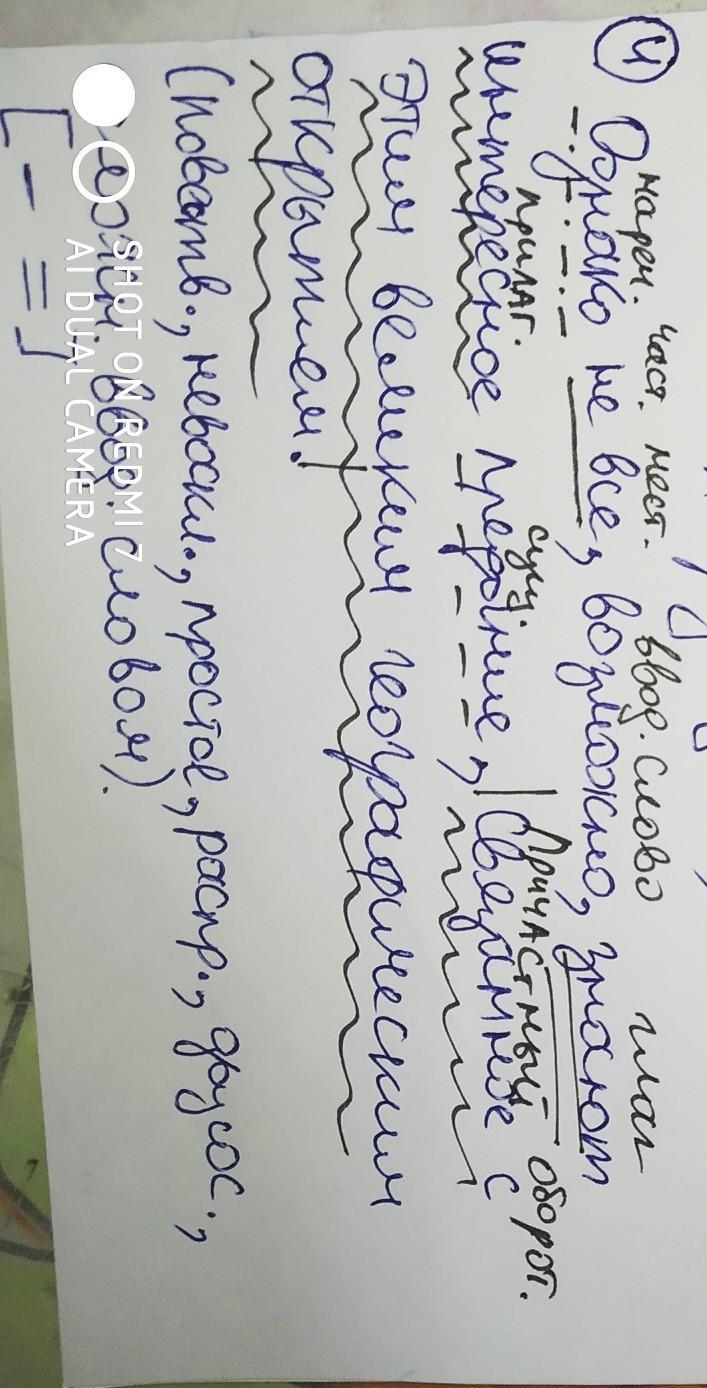 4
нареч. част. мест. ввод. слово глаг
Однако не все, возможно, знают
прилаг. сущ. Причастный оборот.
интересное предание, | связанное с
этим великим географическим
открытием. |
(Повеств., невоскл., простое, распр., двусос.,
ослож. ввод. словом).
[ - = ]
SHOT ON REDMI 7
AI DUAL CAMERA